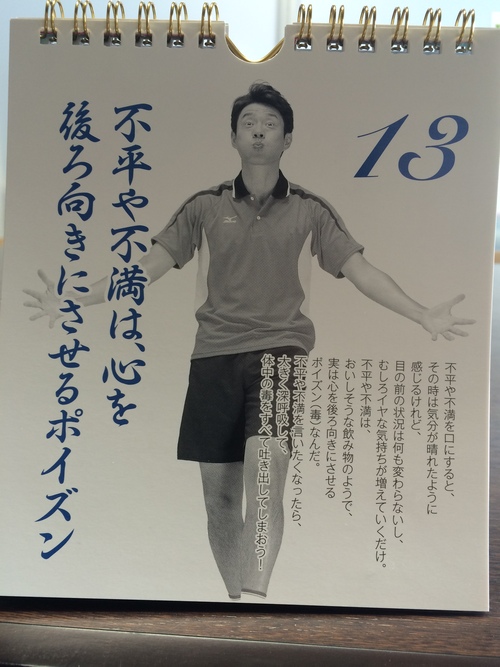 13
不平や不満は、心を
後ろ向きにさせるポイズン
不平や不満を口にすると、
その時は気分が晴れたように
感じるけれど、
目の前の状況は何も変わらないし、
むしろイヤな気持ちが増えていくだけ。
不平や不満は、
おいしそうな飲み物のようで、
実は心を後ろ向きにさせる
ポイズン（毒）なんだ。
不平や不満を言いたくなったら、
大きく深呼吸して、
体中の毒をすべて吐き出してしまおう！